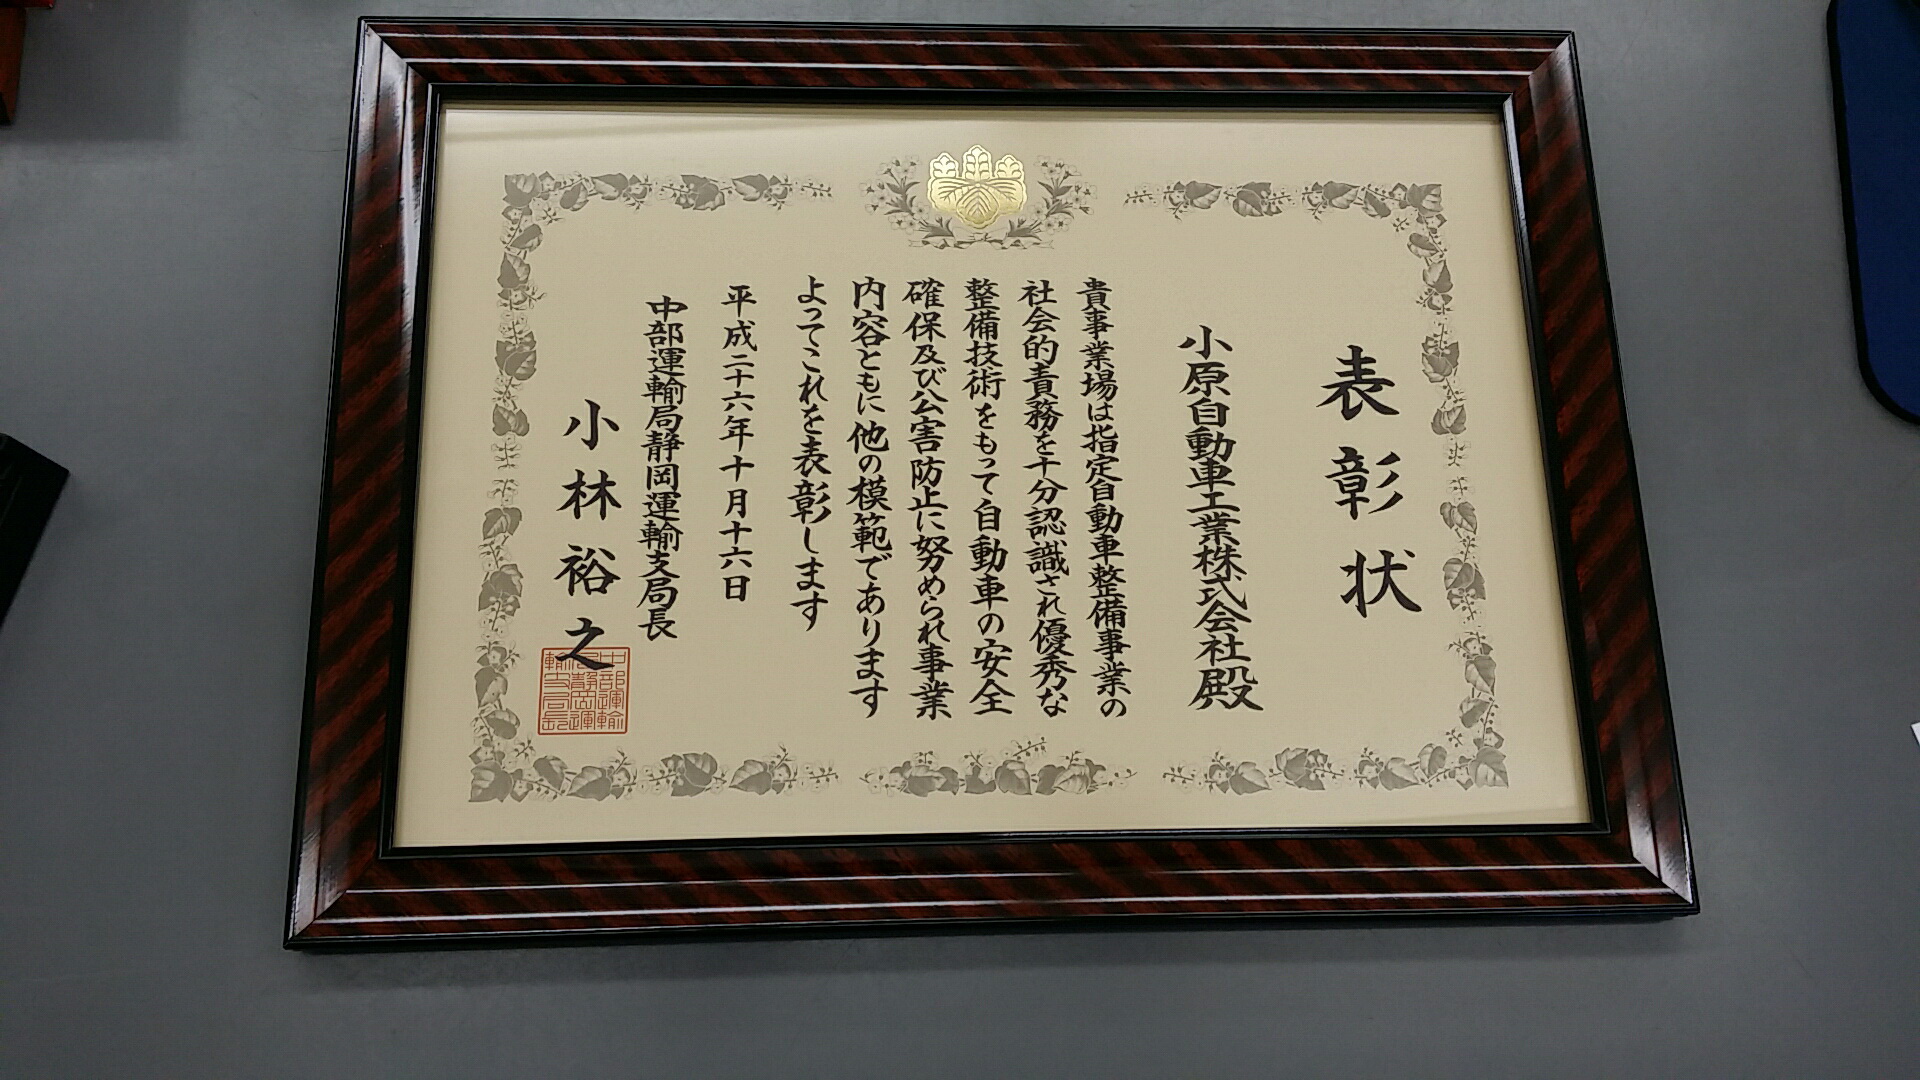 表彰状
小原自動車工業株式会社殿
貴事業場は指定自動車整備事業の
社会的責務を十分認識され優秀な
整備技術をもって自動車の安全
確保及び公害防止に努められ事業
内容ともに他の模範であります
よってこれを表彰します
平成二十六年十月十六日
中部運輸局静岡運輸支局長
小林裕之
中部運輸
局静岡運
輸支局長